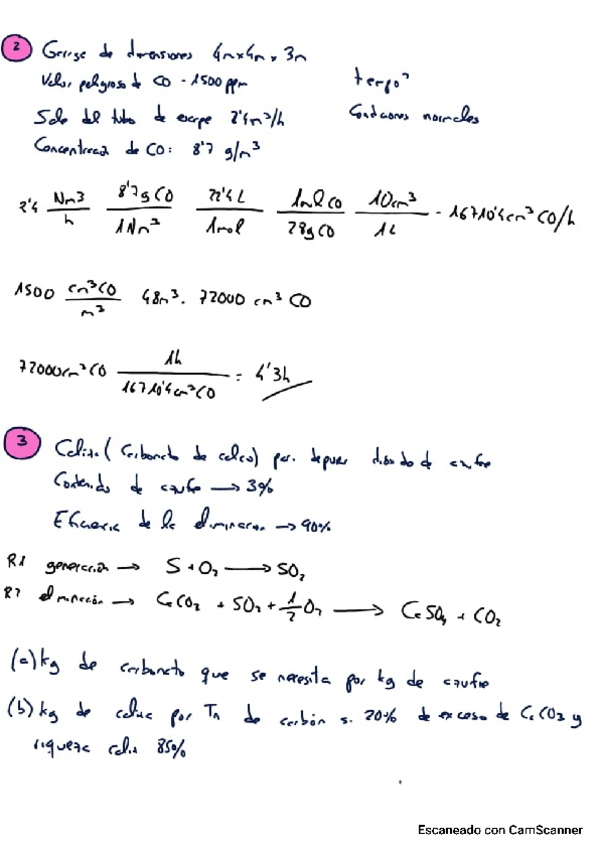 2 Garage de dimensiones 4m x 4m x 3m
Valor peligroso de CO - 1500 ppm tiempo?
Sale del tubo de escape 2'4m³/h Condiciones normales
Concentración de CO: 8'7 g/m³
2'4 Nm3/h 8'7gCO/1Nm³ 22'4L/1mol 1mol CO/28gCO 10³cm³/1L = 16710'4cm³CO/h
1500 cm³CO/m³ 48m³ = 72000 cm³ CO
72000cm³CO 1h/16710'4cm³CO = 4'3h
3 Caliza (Carbonato de calcio) para depurar dióxido de azufre
Contenido de azufre → 3%
Eficiencia de la eliminación → 90%
R1 generación → S + O₂ → SO₂
R2 eliminación → CaCO₃ + SO₂ + 1/2 O₂ → CaSO₄ + CO₂
(a) kg de carbonato que se necesita por kg de azufre
(b) kg de caliza por Tn de carbón si 20% de exceso de CaCO3 y
riqueza caliza 85%
Escaneado con CamScanner